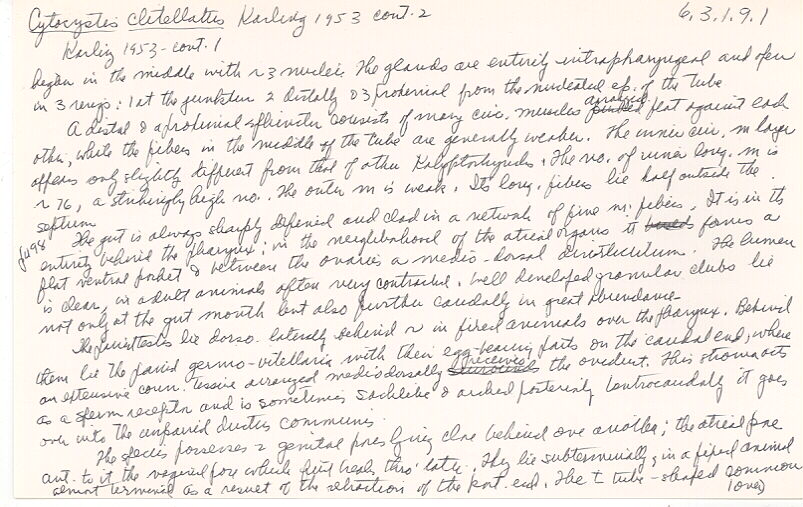 Cytocystis clitellatus Karling 1953 cont. 2 6.3.1.9.1
Karling 1953 - cont. 1
began in the middle with ~3 nuclei. The glands are entirely intrapharyngeal and open
in 3 rings: 1 at the junction 2 distally & 3 proximal from the nucleated ep. of the tube
A distal & a proximal sphincter consists of many circ. muscles arranged flat against each
other, while the fibers in the middle of the tube are generally weaker. The inner circ. m layer
differs only slightly different from that of other Kalyptorhynchs. The no. of inner long. m is
~ 76, a strikingly high no. The outer m is weak. Its long. fibers lie half outside the
septum.
The gut is always sharply defined and clad in a network of fine m. fibers. It is in its
entirety behind the pharynx; in the neighborhood of the atrial organs it forms a
flat ventral pocket & between the ovaries a medio-dorsal diverticulum. The lumen
is clear, in adult animals often very contracted. Well developed granular clubs lie
not only at the gut mouth but also further caudally in great abundance.
The testis lie dorso-laterally behind or in fixed animals over the pharynx. Behind
them lie the paired germo-vitellaria with their egg-bearing parts on the caudal end, where
an extensive conn. tissue arranged mediodorsally receives the oviduct. This stroma acts
as a sperm receptor and is sometimes sacklike & arched posteriorly ventrocaudally it goes
over into the unpaired ductus communis.
The species possesses 2 genital pores lying close behind one another; the atrial pore
ant. to it the vaginal pore which lies thro' latter. They lie subterminally & in a fixed animal
almost terminal as a result of the retraction of the post. end. The tube-shaped common
(over)